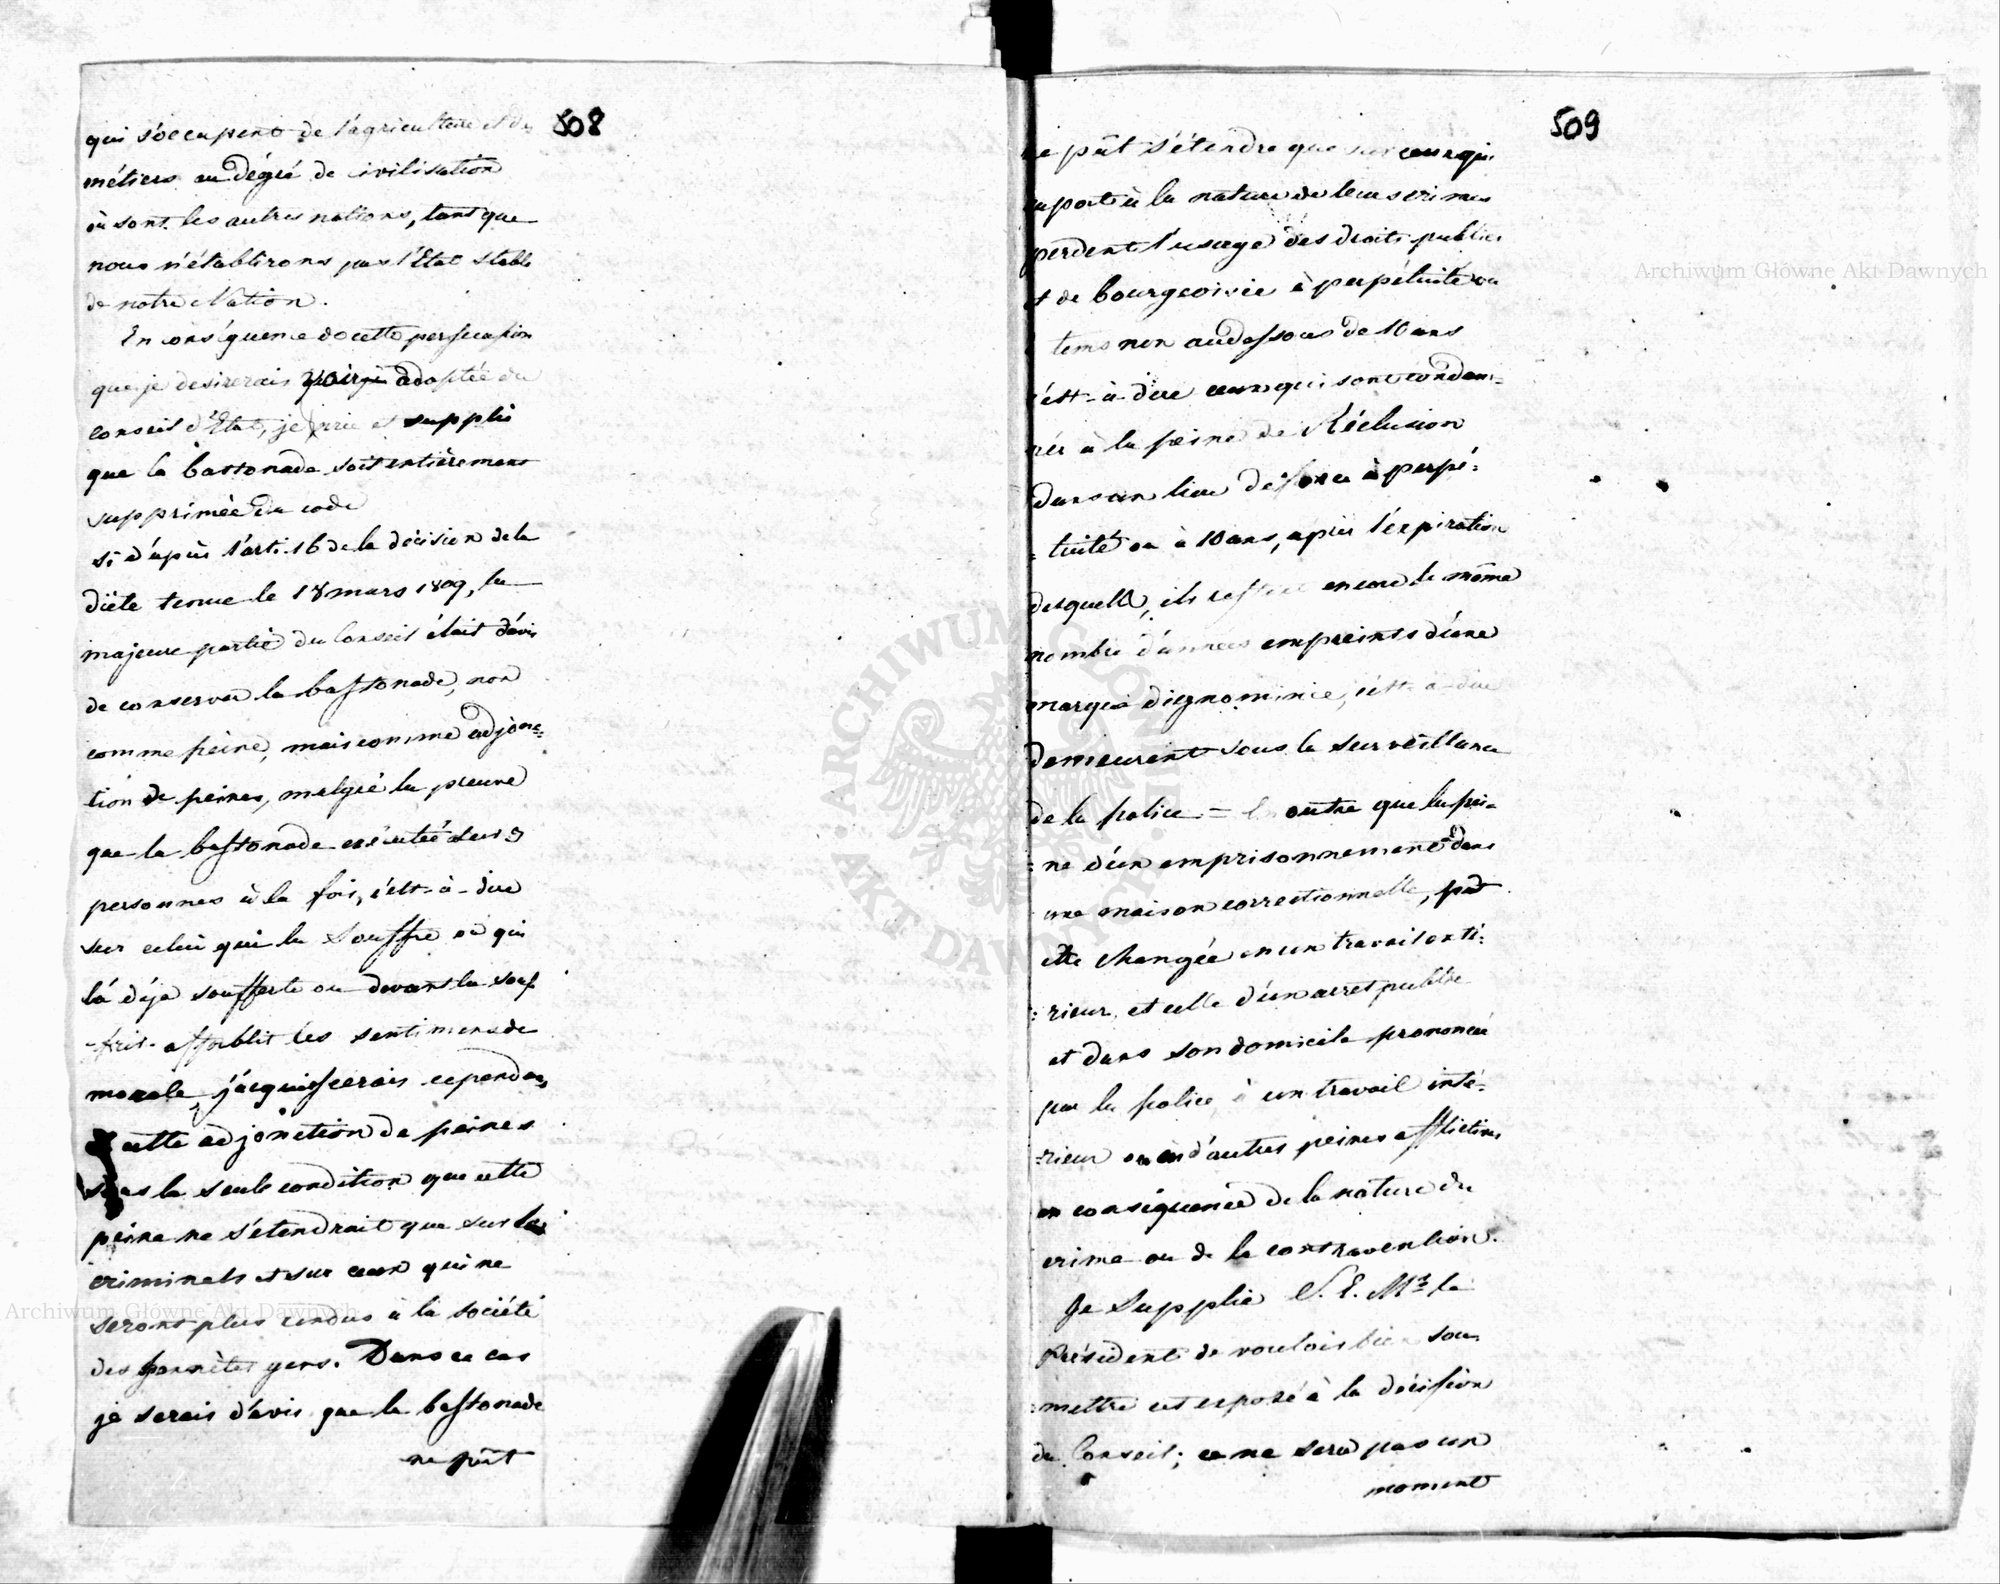 508
qui s'occupent de l'agriculture et des
métiers au dégré de civilisation
où sont les autres nations, tant que
nous n'établirons pas l'Etat stable
de notre Nation.
En conséquence de cette persuasion
que je desirerais adoptée du
conseil d'Etat, je prie et supplie
que la bastonade soit entièrement
supprimée du code
si d'après l'arti. 16 de la décision de la
diète tenue le 18 mars 1809, la
majeure partie du Conseil était d'avis
de conserver la bastonade, non
comme peine, mais comme adjonc=
tion de peines, malgré la preuve
que la bastonade exécutée sur
personnes à la fois, c'est-à-dire
sur celui qui la souffre ou qui
l'a déja soufferte ou devant la souf
-frir- affoiblit les sentimens de
morale, j'acquiescerais cependant
à cette adjonction de peines
sous la seule condition que cette
peine ne s'étendrait que sur les
criminels et sur ceux qui ne
seront plus rendus à la société
des honnêtes gens. Dans ce cas
je serais d'avis que la bastonade
ne pût
509
ne pût s'étendre que sur ceux qui
raport à la nature de leurs crimes
perdent l'usage des droits publics
et de bourgeoisie à perpétuité ou
tems non audessous de 10 ans
c'est-à-dire ceux qui sont condam=
nés à la peine de Réclusion
dans un lieu de force à perpé=
=tuité ou à 10 ans, après l'expiration
desquells, ils restent encore le même
nombre d'années empreints d'une
marque d'ignominie, c'est-à-dire
demeurent sous la surveillance
de la police = En outre que la pei=
=ne d'un emprisonnement dans
une maison correctionnelle, pût
etre changée en un travail exté=
=rieur, et celle d'un arret public
et dans son domicile prononcée
par la police à un travail inté=
=rieur ou en d'autres peines afflictives
en conséquence de la nature du
crime ou de la contravention.
Je supplie S. E. Mr. le
Président de vouloir bien sou=
=mettre cet exposé à la décision
du Conseil; ce ne sera pas un
moment
Archiwum Główne Akt Dawnych
Archiwum Główne Akt Dawnych
ARCHIWUM GŁÓWNE AKT DAWNYCH